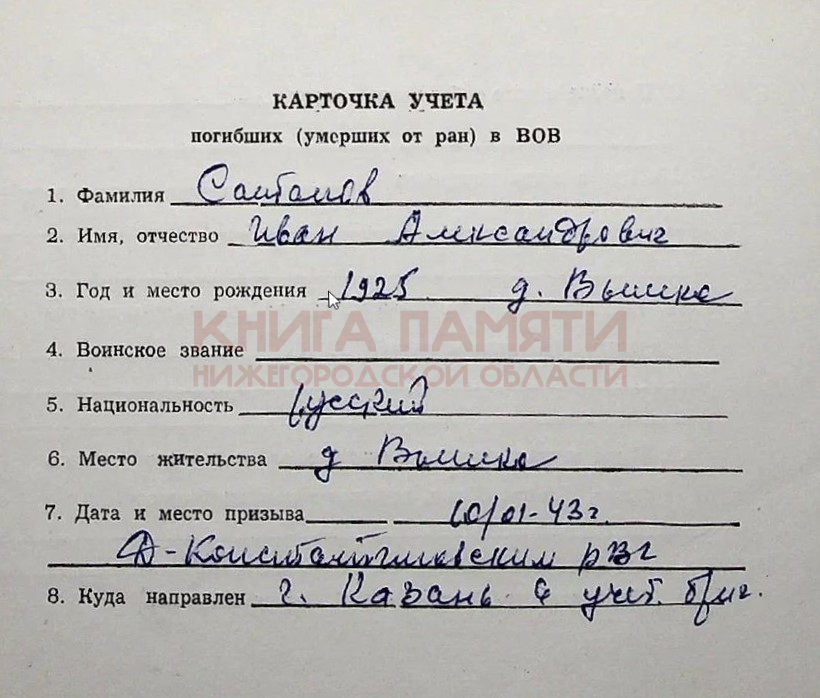 КАРТОЧКА УЧЕТА
погибших (умерших от ран) в ВОВ
1. Фамилия
2. Имя, отчество Иван Александрович
3. Год и место рождения 1925 д. Вышка
КНИГА ПАМЯТИ
4. Воинское звание
НИЖЕГОРОДСКОЙ ОБЛАСТИ
5. Национальность русский
6. Место жительства д Вышка
7. Дата и место призыва 10/01-43г.
Д-Константиновским
8. Куда направлен г. Казань учеб.